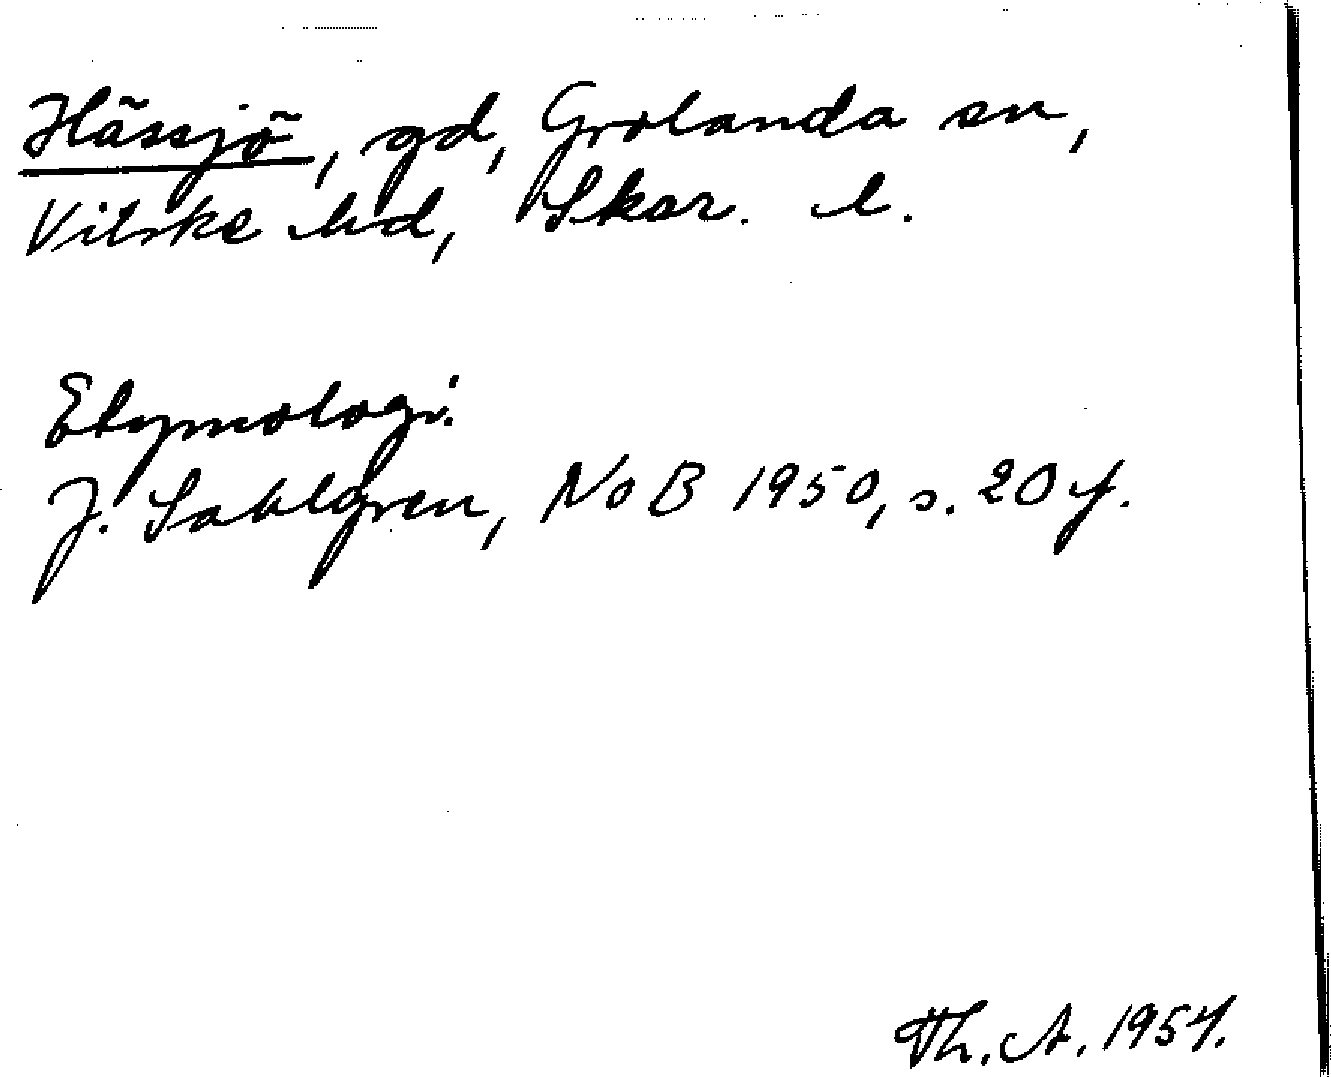 Hässjö, gd, Grolanda sn,
Vilske hd, Skar. l.
Etymologi.
J. Sahlgren, NoB 1950, s. 20 f.
Th. A. 1954.